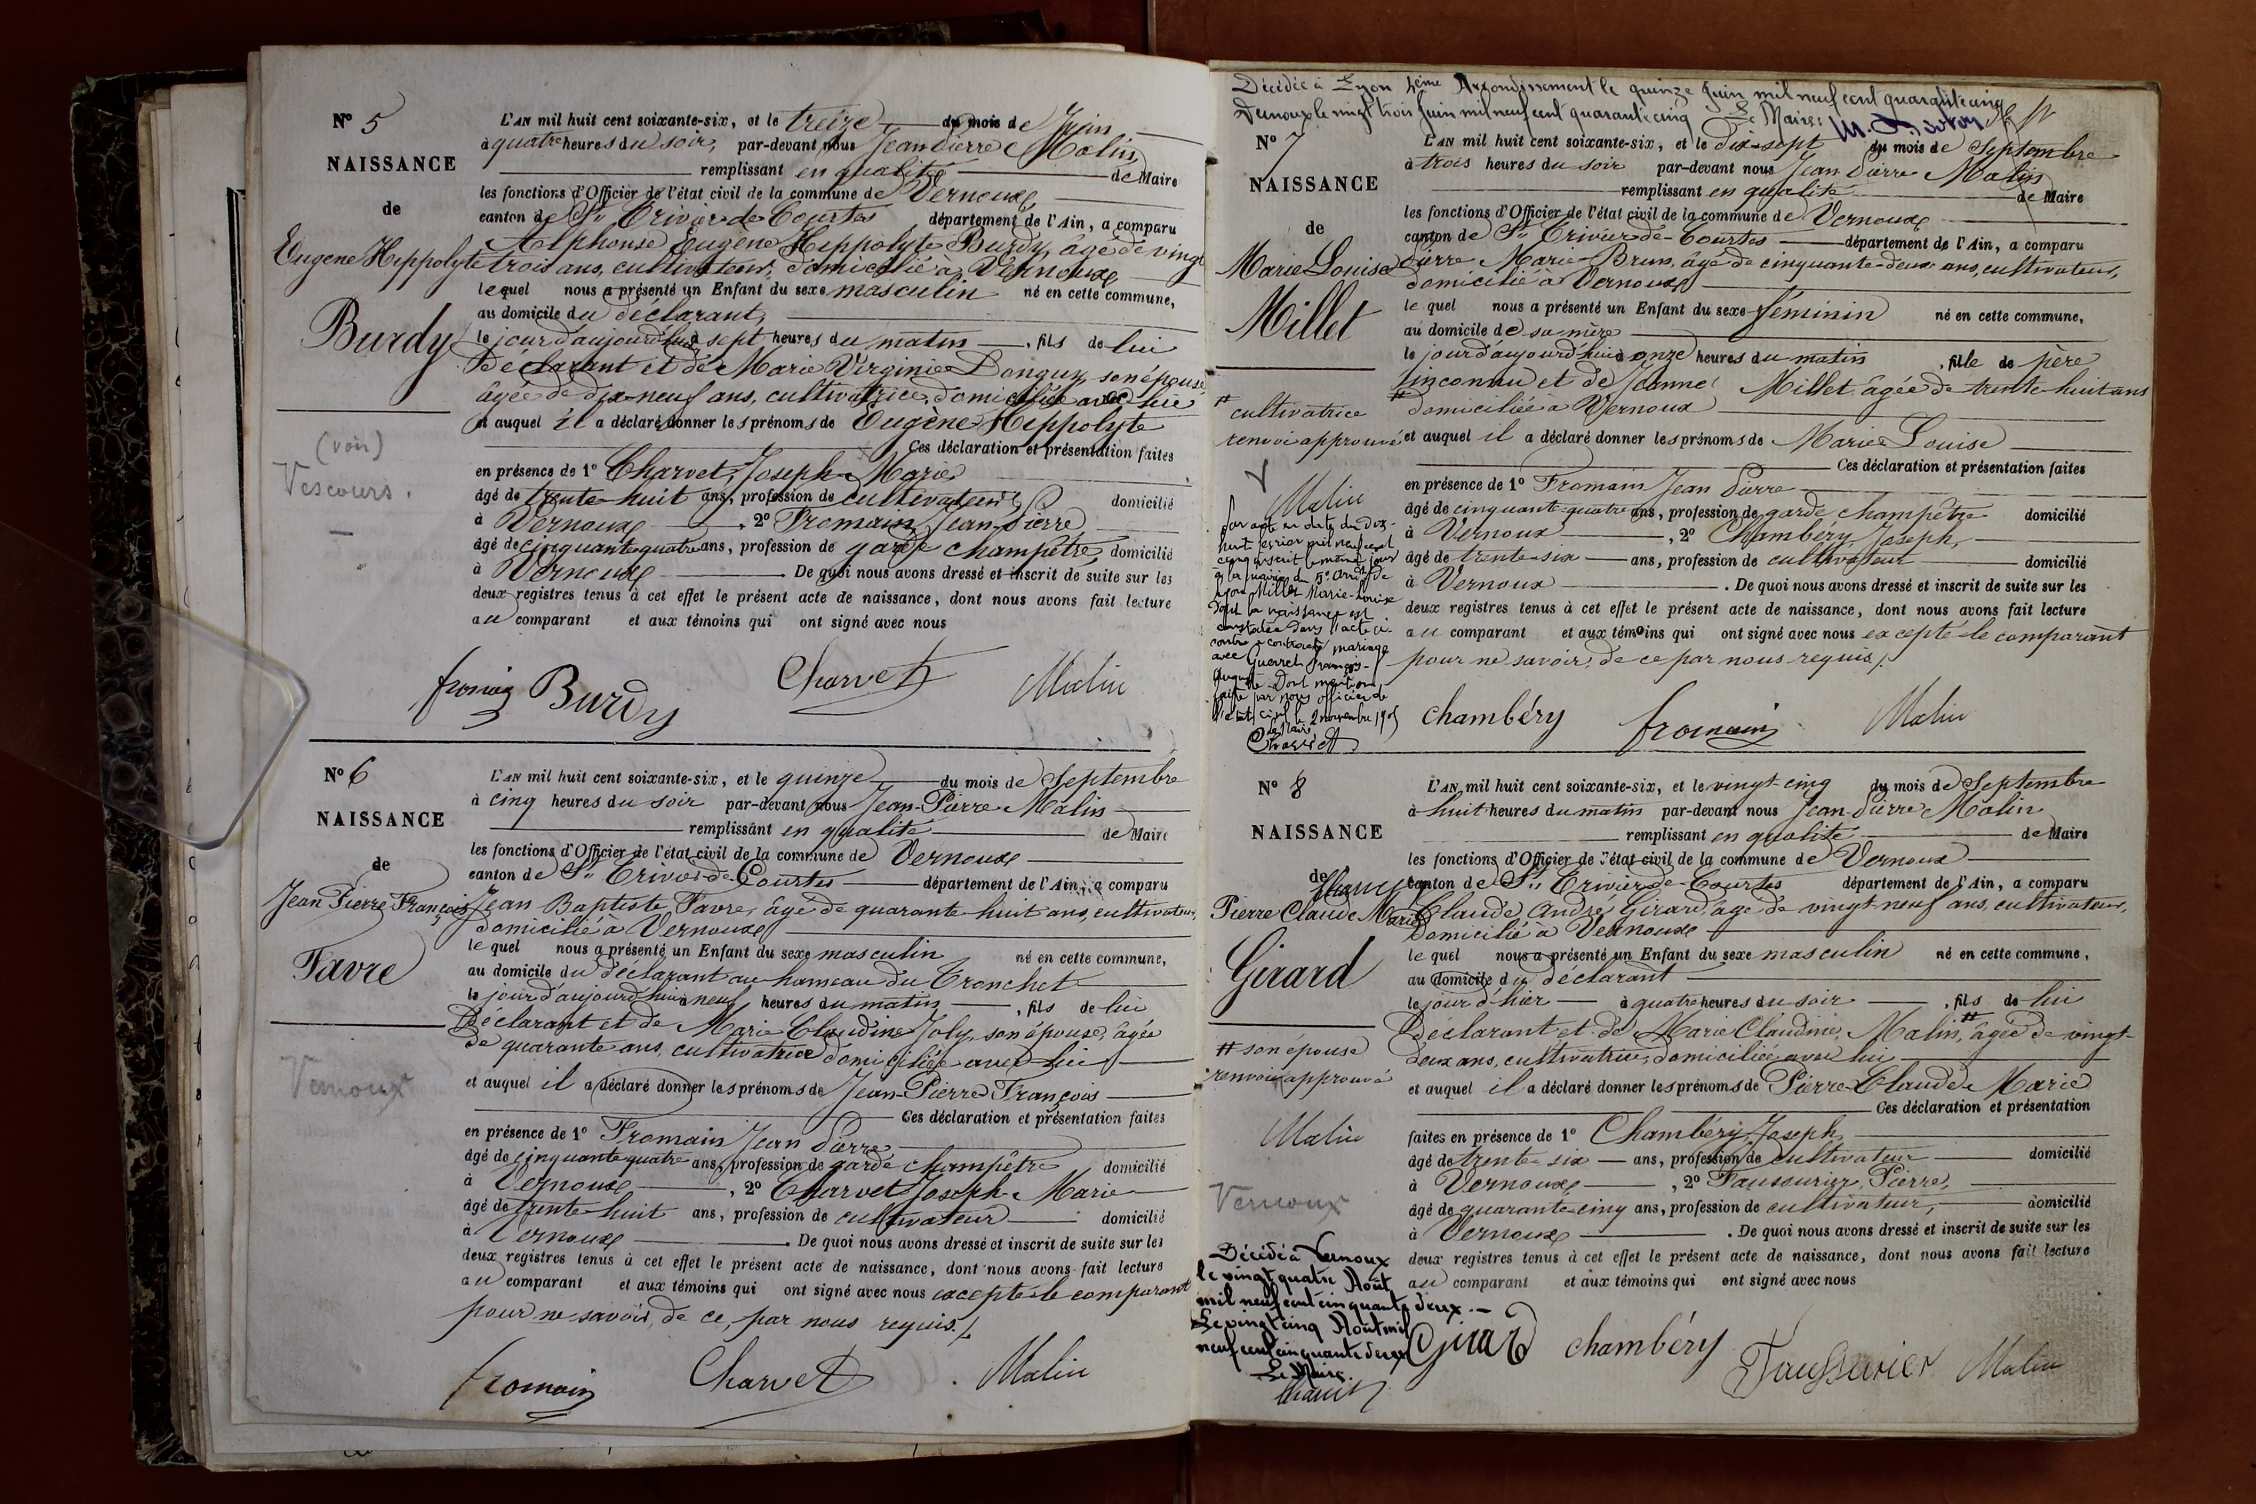 N° 5
NAISSANCE
de
Eugene Hippolyte
Burdy
(voir)
Vescours.
L'AN mil huit cent soixante-six, et le treize du mois de Juin
à quatre heures du soir, par-devant nous Jean Pierre Malin
remplissant en qualité de Maire
les fonctions d'Officier de l'état civil de la commune de Vernoux
canton de St Trivier de Courtes département de l'Ain, a comparu
Alphonse Eugène Hippolyte Burdy, âgé de vingt
trois ans, cultivateur, domicilié à Vernoux
lequel nous a présenté un Enfant du sexe masculin né en cette commune,
au domicile du déclarant,
le jour d'aujourd'hui à sept heures du matin, fils de lui
Déclarant et de Marie Virginie Donguy, son épouse
âgée de dix-neuf ans, cultivatrice, domiciliée avec lui
et auquel il a déclaré donner les prénoms de Eugène Hippolyte
Ces déclaration et présentation faites
en présence de 1° Charvet, Joseph Marie
âgé de trente-huit ans, profession de cultivateur domicilié
à Vernoux, 2° Fromain Jean-Pierre
âgé de cinquante quatre ans, profession de garde champêtre, domicilié
à Vernoux. De quoi nous avons dressé et inscrit de suite sur les
deux registres tenus à cet effet le présent acte de naissance, dont nous avons fait lecture
au comparant et aux témoins qui ont signé avec nous
fromain Burdy Charvet Malin
N° 6
NAISSANCE
de
Jean Pierre François
Favre
Vernoux
L'AN mil huit cent soixante-six, et le quinze du mois de Septembre
à cinq heures du soir par-devant nous Jean-Pierre Malin
remplissant en qualité de Maire
les fonctions d'Officier de l'état civil de la commune de Vernoux
canton de St Trivier de Courtes département de l'Ain, a comparu
Jean Baptiste Favre, âgé de quarante huit ans, cultivateur,
domicilié à Vernoux
le quel nous a présenté un Enfant du sexe masculin né en cette commune,
au domicile du déclarant au hameau du Tronchet
le jour d'aujourd'hui à neuf heures du matin, fils de lui
Déclarant et de Marie Claudine Joly, son épouse, âgée
de quarante ans, cultivatrice domiciliée avec lui
et auquel il a déclaré donner les prénoms de Jean-Pierre François
Ces déclaration et présentation faites
en présence de 1° Fromain Jean Pierre
âgé de cinquante quatre ans, profession de garde champêtre domicilié
à Vernoux, 2° Charvet Joseph Marie
âgé de trente huit ans, profession de cultivateur domicilié
à Vernoux. De quoi nous avons dressé et inscrit de suite sur les
deux registres tenus à cet effet le présent acte de naissance, dont nous avons fait lecture
au comparant et aux témoins qui ont signé avec nous excepté le comparant
pour ne savoir, de ce, par nous requis.
fromain Charvet Malin
Décédée à Lyon 4ème Arrondissement le quinze Juin mil neuf cent quarante cinq
Vernoux le vingt trois Juin mil neuf cent quarante cinq Le Maire:
N° 7
NAISSANCE
de
Marie Louise
Millet
# cultivatrice
renvoi approuvé
Malin
Par acte en date du dix-
huit février mil neuf cent
cinq inscrit le même jour
à la mairie du 5e arrdt de
Lyon Millet Marie-Louise
dont la naissance est
constatée dans l'acte ci-
contre a contracté mariage
avec Guerret François-
Auguste. Dont mention
faite par nous officier de
l'état civil le 2 novembre 1905
Le Maire
L'AN mil huit cent soixante-six, et le dix-sept du mois de Septembre
à trois heures du soir par-devant nous Jean Pierre Malin
remplissant en qualité de Maire
les fonctions d'Officier de l'état civil de la commune de Vernoux
canton de St Trivier de Courtes département de l'Ain, a comparu
Pierre Marie Brun, âgé de cinquante-deux ans, cultivateur,
domicilié à Vernoux
le quel nous a présenté un Enfant du sexe féminin né en cette commune,
au domicile de sa mère
le jour d'aujourd'hui à onze heures du matin, fille de père
inconnu et de Jeanne Millet âgée de trente huit ans
# domiciliée à Vernoux
et auquel il a déclaré donner les prénoms de Marie Louise
Ces déclaration et présentation faites
en présence de 1° Fromain Jean Pierre
âgé de cinquante quatre ans, profession de garde champêtre domicilié
à Vernoux, 2° Chambéry, Joseph,
âgé de trente-six ans, profession de cultivateur domicilié
à Vernoux. De quoi nous avons dressé et inscrit de suite sur les
deux registres tenus à cet effet le présent acte de naissance, dont nous avons fait lecture
au comparant et aux témoins qui ont signé avec nous excepté le comparant
pour ne savoir, de ce par nous requis.
chambéry fromain Malin
N° 8
NAISSANCE
de
Pierre Claude Marie
Girard
# son épouse
renvoi approuvé
Malin
Vernoux
Décédé à Vernoux
le vingt quatre Août
mil neuf cent cinquante deux.
Le vingt cinq Août mil
neuf cent cinquante deux
Le Maire.
L'AN mil huit cent soixante-six, et le vingt-cinq du mois de Septembre
à huit heures du matin par-devant nous Jean-Pierre Malin
remplissant en qualité de Maire
les fonctions d'Officier de l'état civil de la commune de Vernoux
canton de St Trivier de Courtes département de l'Ain, a comparu
Claude André Girard, âgé de vingt neuf ans, cultivateur,
domicilié à Vernoux
le quel nous a présenté un Enfant du sexe masculin né en cette commune,
au domicile du déclarant
le jour d'hier à quatre heures du soir, fils de lui
Déclarant et de Marie Claudine Malin, # âgée de vingt-
deux ans, cultivatrice, domiciliée avec lui
et auquel il a déclaré donner les prénoms de Pierre Claude Marie
Ces déclaration et présentation
faites en présence de 1° Chambéry Joseph,
âgé de trente-six ans, profession de cultivateur domicilié
à Vernoux, 2° Faussurier, Pierre,
âgé de quarante-cinq ans, profession de cultivateur, domicilié
à Vernoux. De quoi nous avons dressé et inscrit de suite sur les
deux registres tenus à cet effet le présent acte de naissance, dont nous avons fait lecture
au comparant et aux témoins qui ont signé avec nous
Girard chambéry Faussurier Malin